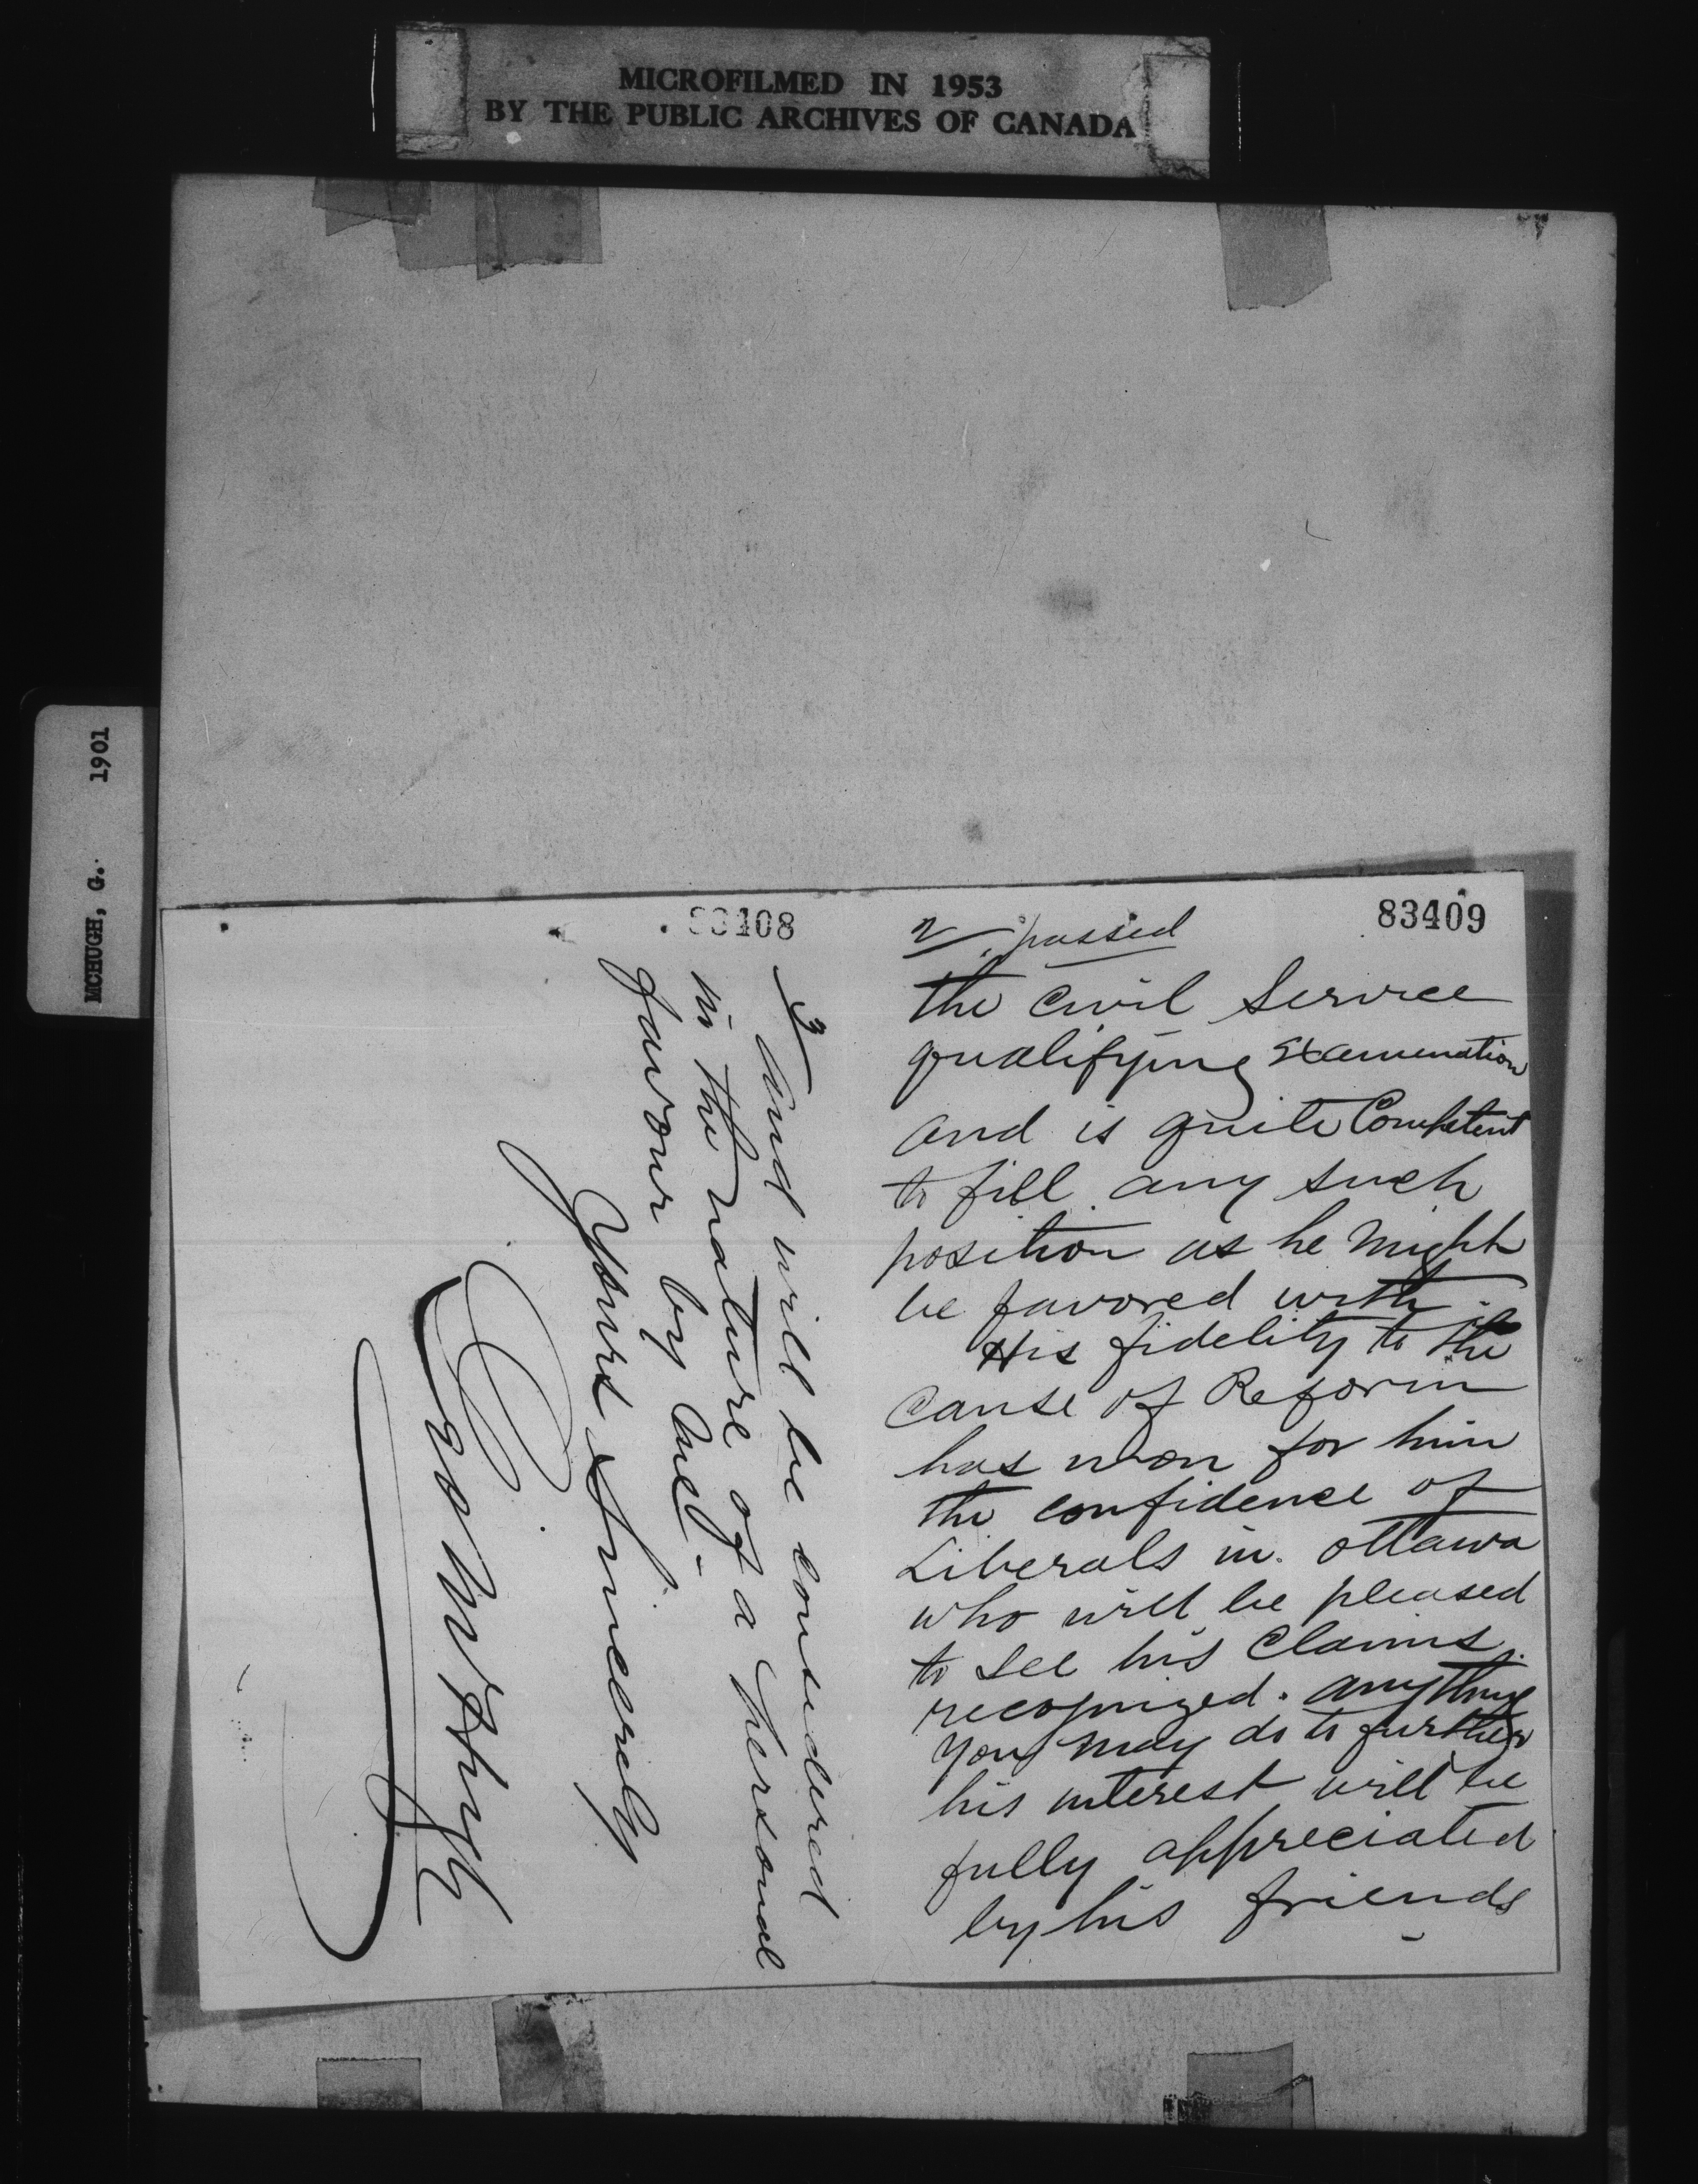 MICROFILMED IN 1953
BY THE PUBLIC ARCHIVES OF CANADA
MCHUGH, G. 1901
83409
2 passed
the Civil Service
qualifying examination
and is quite Competent
to fill any such
position as he might
be favored with.
His fidelity to the
Cause of Reform
has won for him
the confidence of
Liberals in Ottawa
who will be pleased
to see his Claims
recognized. anything
you may do to further
his interest will be
fully appreciated
by his friends
83408
3
and will be considered
in the nature of a personal
favour by me.
Yours Sincerely
Geo McHugh